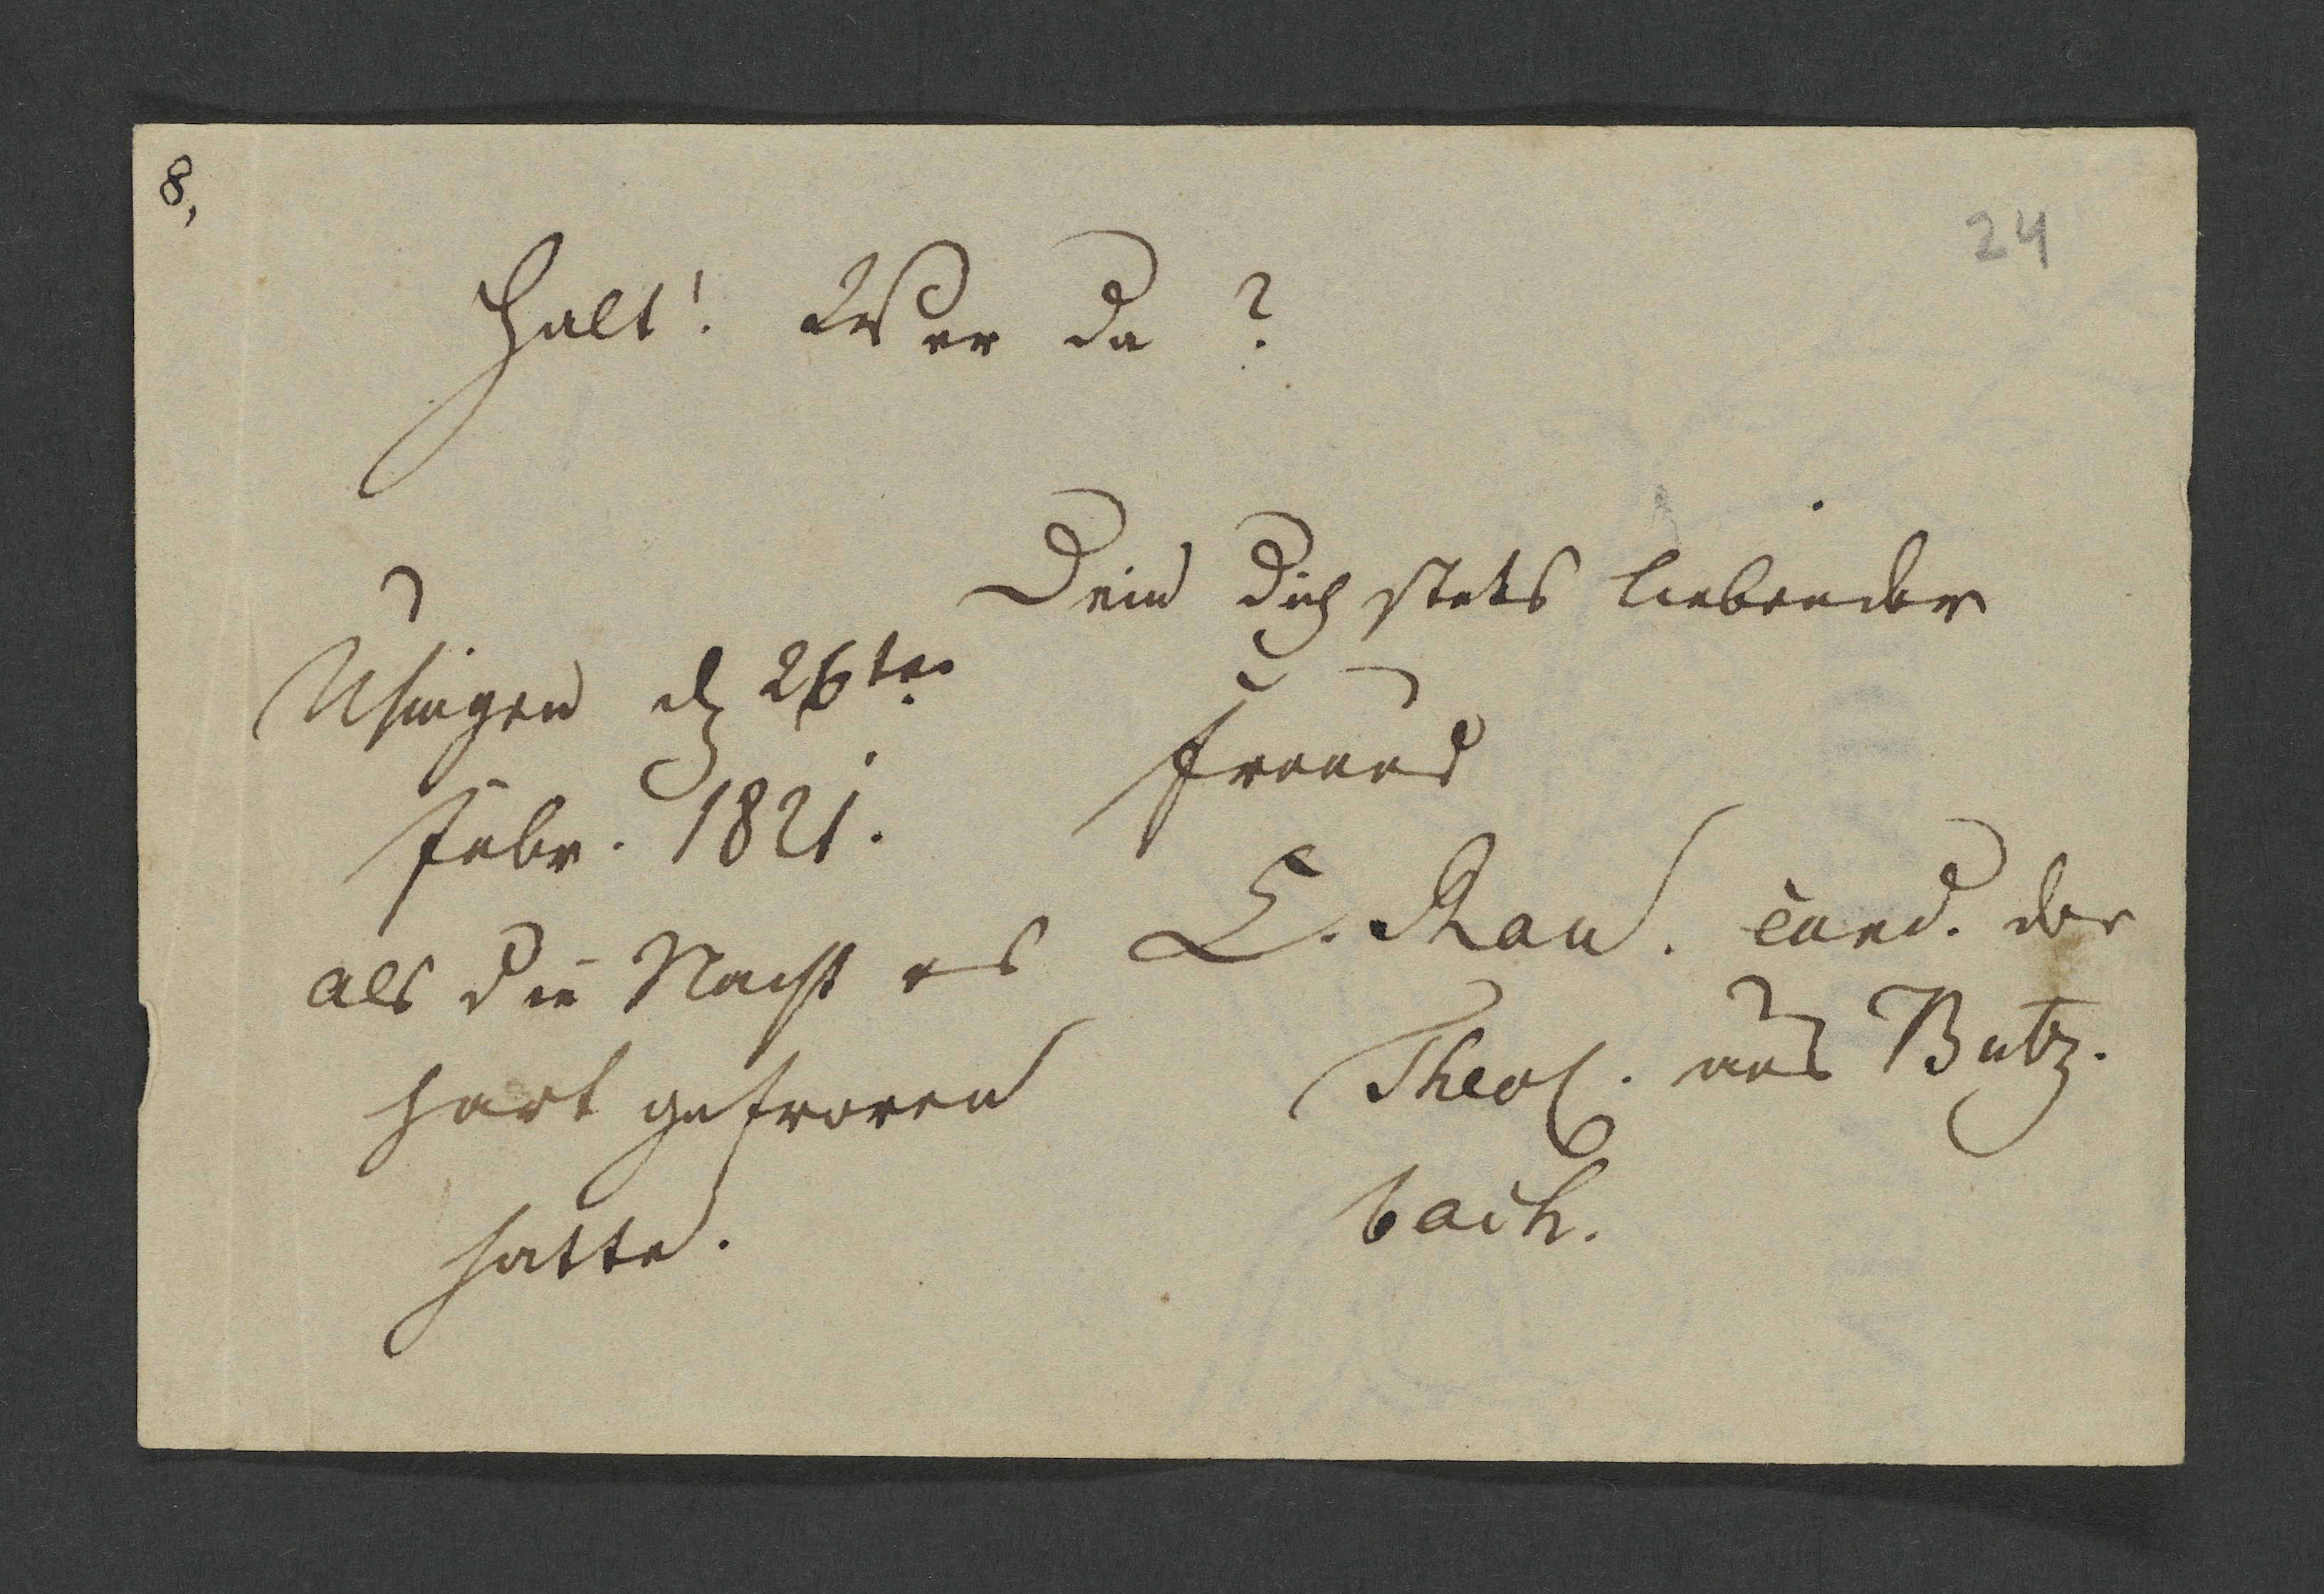 8,
24
Halt! Wer da?
Dein Dich stets liebender
Freund
L. Rau. Cand. der
Theol. aus Butz-
bach.
Usingen d 26ten
Febr. 1821.
als die Nacht es
hart gefroren
hatte.